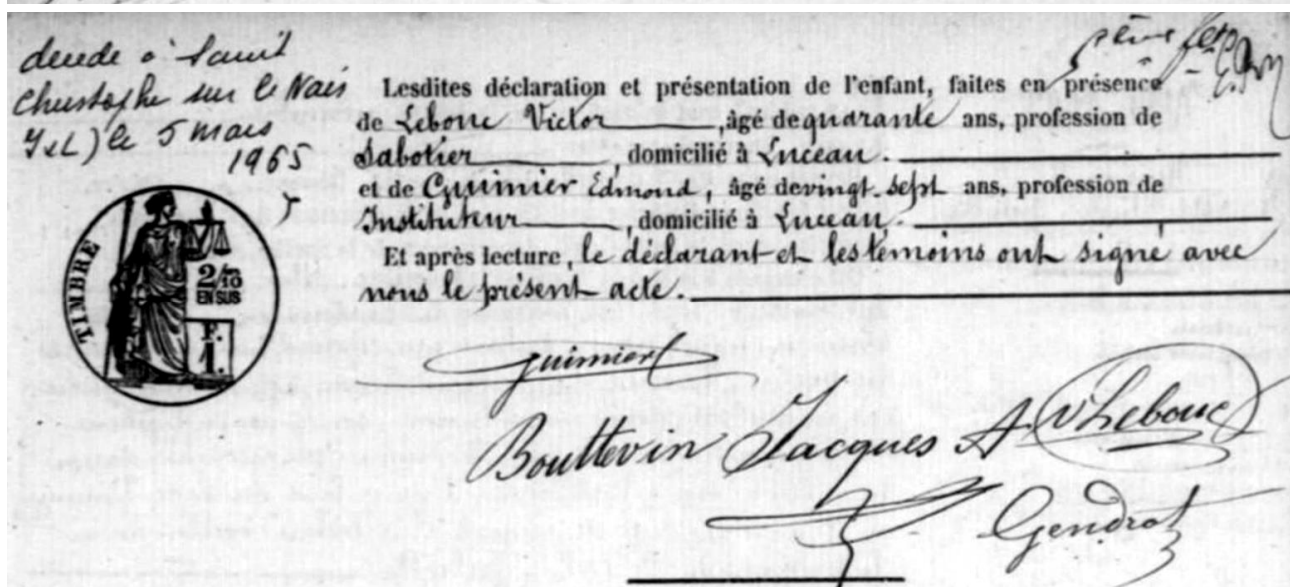 décédé à Saint
Christophe sur le Nais
(I et L) le 5 mars
1965
TIMBRE
2/10
EN SUS
F.
1.
Lesdites déclaration et présentation de l'enfant, faites en présence
de Lebouc Victor, âgé de quarante ans, profession de
Sabotier, domicilié à Luceau.
et de Guimier Edmond, âgé de vingt sept ans, profession de
Instituteur, domicilié à Luceau.
Et après lecture, le déclarant et les témoins ont signé avec
nous le présent acte.
Guimier
Bouttevin Jacques A. V Lebouc
Gendrot